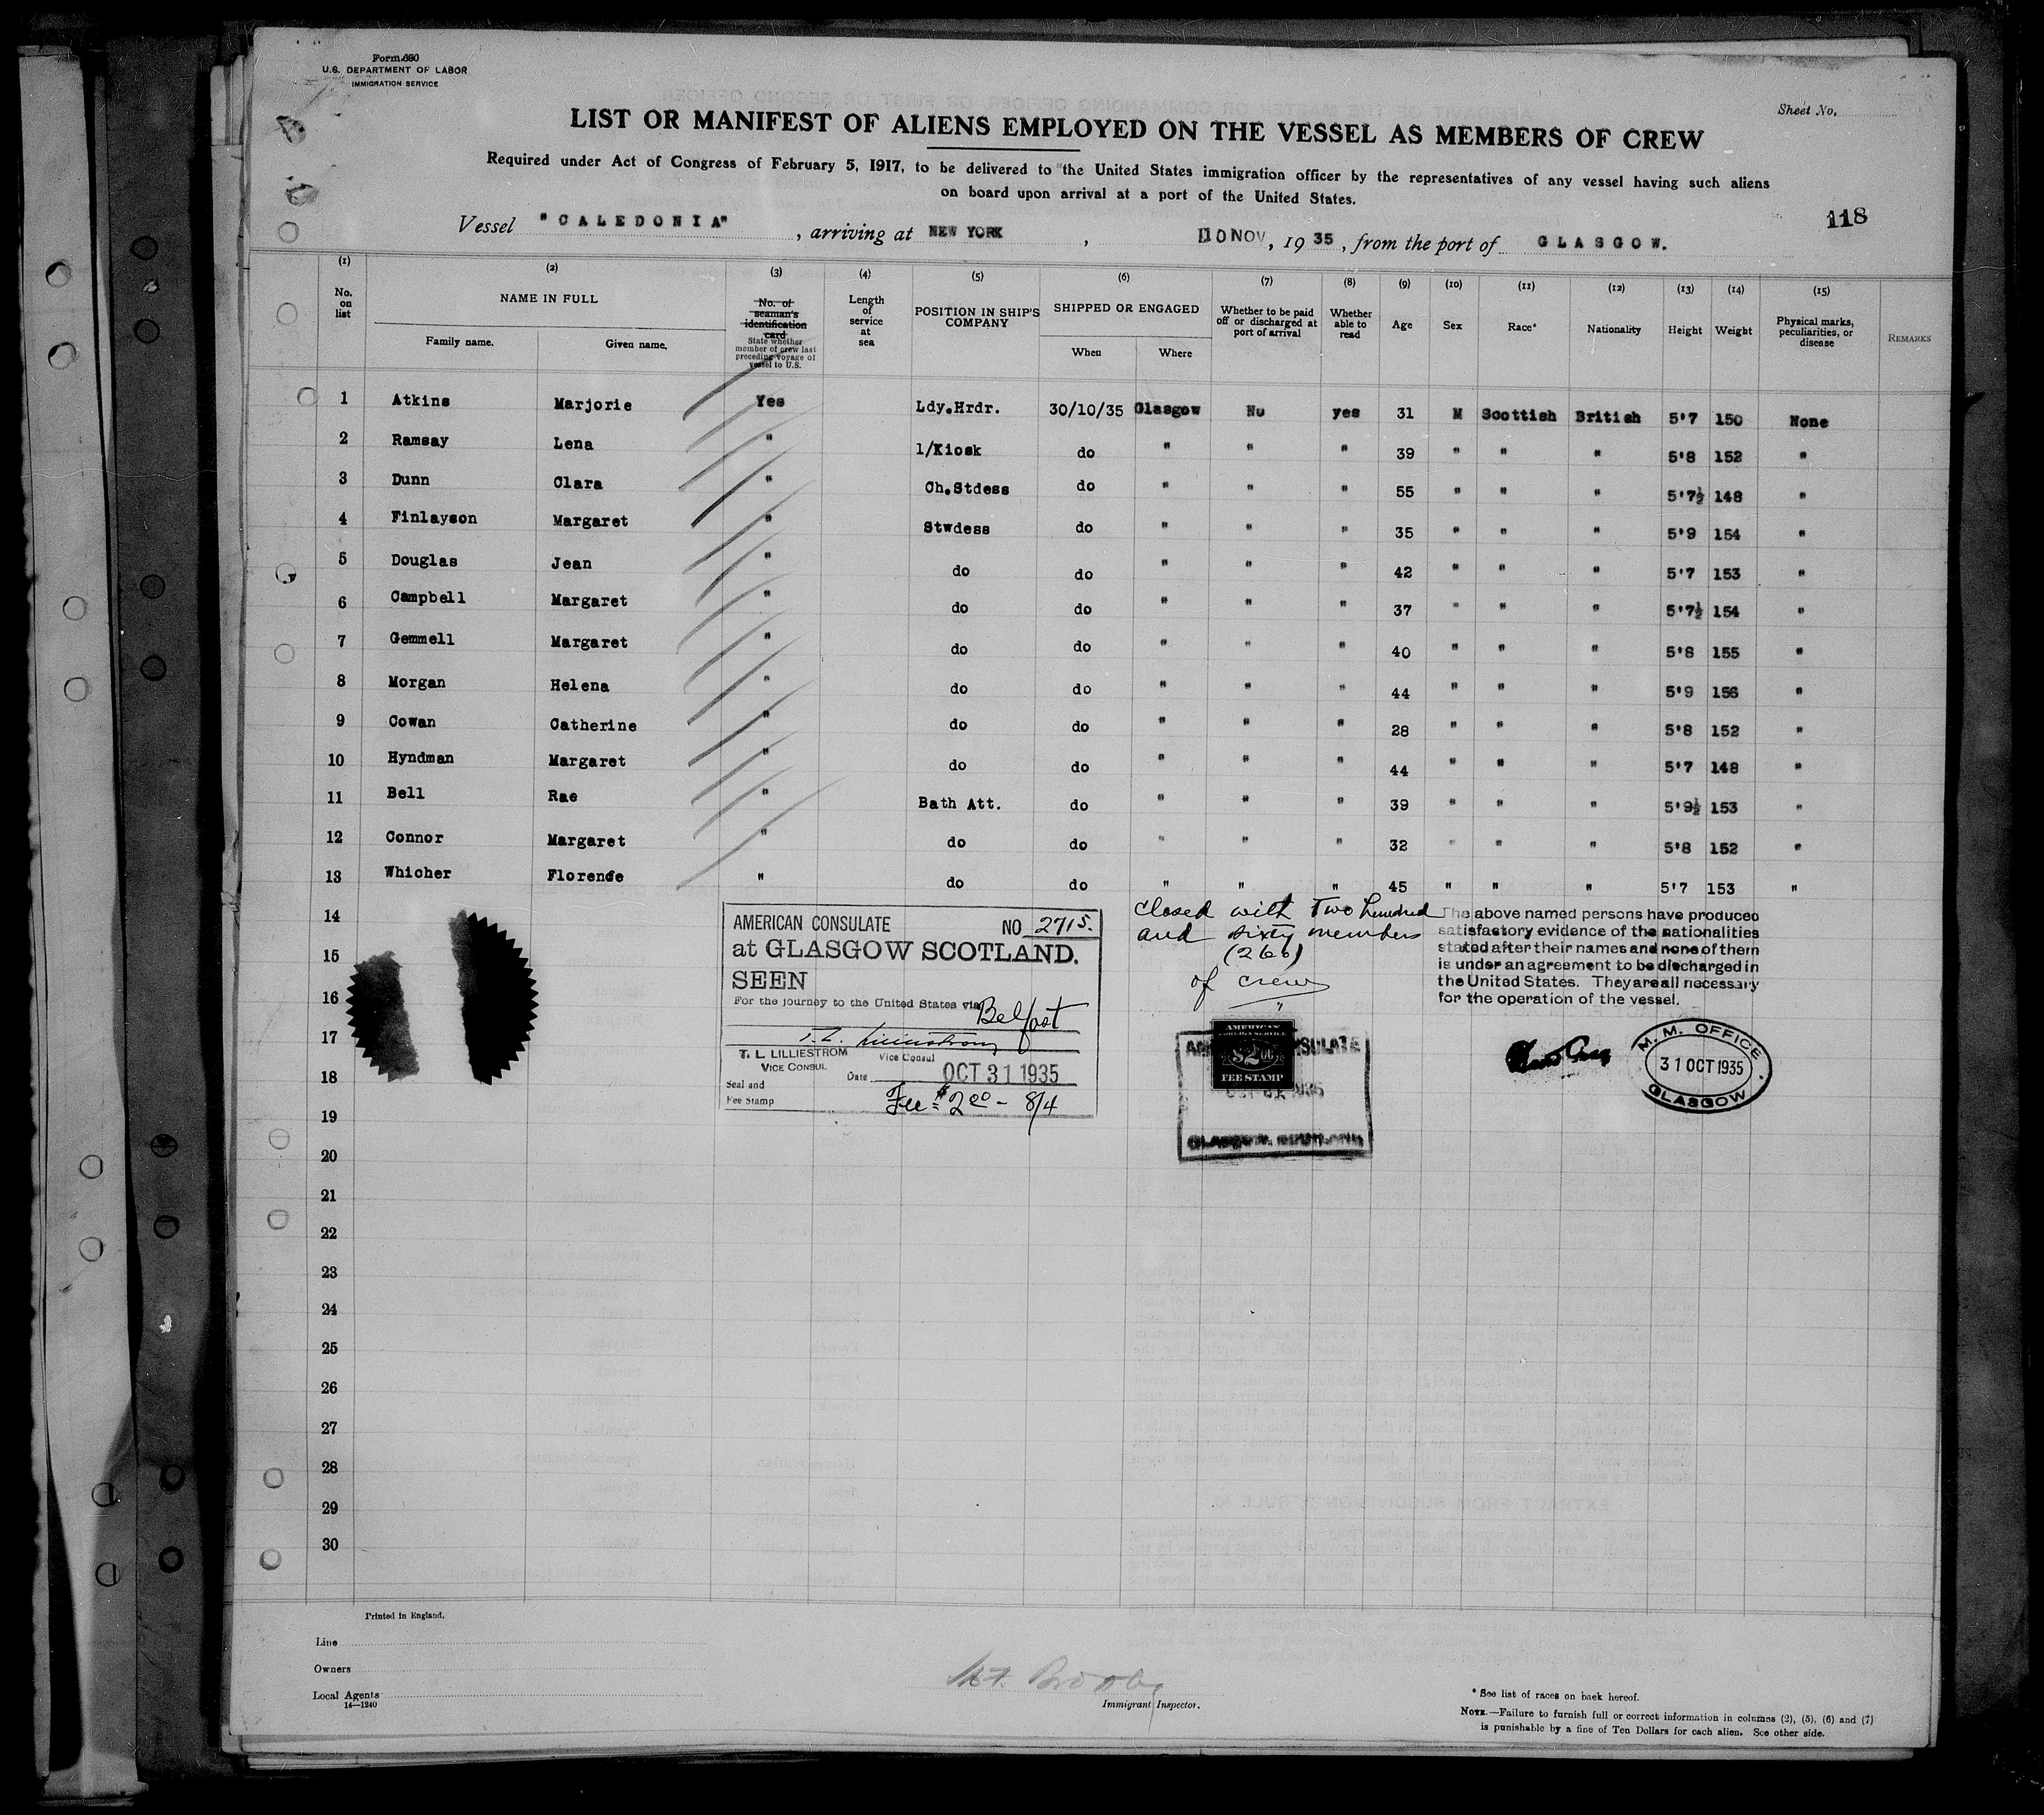 Form 680
U.S. DEPARTMENT OF LABOR
IMMIGRATION SERVICE
Sheet No.
LIST OR MANIFEST OF ALIENS EMPLOYED ON THE VESSEL AS MEMBERS OF CREW
Required under Act of Congress of February 5, 1917, to be delivered to the United States immigration officer by the representatives of any vessel having such aliens
on board upon arrival at a port of the United States.
118
Vessel "CALEDONIA", arriving at NEW YORK, 10 NOV, 1935, from the port of GLASGOW.
(1) (2) (3) (4) (5) (6) (7) (8) (9) (10) (11) (12) (13) (14) (15)
No. on list
NAME IN FULL
Family name. Given name.
No. of seaman's identification card
State whether member of crew last preceding voyage of vessel to U.S.
Length of service at sea
POSITION IN SHIP'S COMPANY
SHIPPED OR ENGAGED
When Where
Whether to be paid off or discharged at port of arrival
Whether able to read
Age
Sex
Race*
Nationality
Height
Weight
Physical marks, peculiarities, or disease
REMARKS
1 Atkins Marjorie Yes Ldy.Hrdr. 30/10/35 Glasgow No yes 31 M Scottish British 5'7 150 None
2 Ramsay Lena " 1/Kiosk do " " " 39 " " " 5'8 152 "
3 Dunn Clara " Ch.Stdess do " " " 55 " " " 5'7½ 148 "
4 Finlayson Margaret " Stwdess do " " " 35 " " " 5'9 154 "
5 Douglas Jean " do do " " " 42 " " " 5'7 153 "
6 Campbell Margaret " do do " " " 37 " " " 5'7½ 154 "
7 Gemmell Margaret " do do " " " 40 " " " 5'8 155 "
8 Morgan Helena " do do " " " 44 " " " 5'9 156 "
9 Cowan Catherine " do do " " " 28 " " " 5'8 152 "
10 Hyndman Margaret " do do " " " 44 " " " 5'7 148 "
11 Bell Rae " Bath Att. do " " " 39 " " " 5'9½ 153 "
12 Connor Margaret " do do " " " 32 " " " 5'8 152 "
13 Whicher Florence " do do " " " 45 " " " 5'7 153 "
14
15
16
17
18
19
20
21
22
23
24
25
26
27
28
29
30
AMERICAN CONSULATE NO 2715.
at GLASGOW SCOTLAND.
SEEN
For the journey to the United States via Belfast
T. L. LILLIESTROM Vice Consul
VICE CONSUL
Date OCT 31 1935
Seal and
Fee Stamp
Fee = $2.00 - 8/4
closed with Two hundred
and sixty members
(266)
of crew
AMERICAN
FOREIGN SERVICE
$2.00
FEE STAMP
AMERICAN CONSULATE
GLASGOW, SCOTLAND
The above named persons have produced
satisfactory evidence of the nationalities
stated after their names and none of them
is under an agreement to be discharged in
the United States. They are all necessary
for the operation of the vessel.
M. M. OFFICE
31 OCT 1935
GLASGOW
Printed in England.
Line
Owners
Local Agents
14—1240
Immigrant Inspector.
* See list of races on back hereof.
NOTE.—Failure to furnish full or correct information in columns (2), (5), (6) and (7)
is punishable by a fine of Ten Dollars for each alien. See other side.